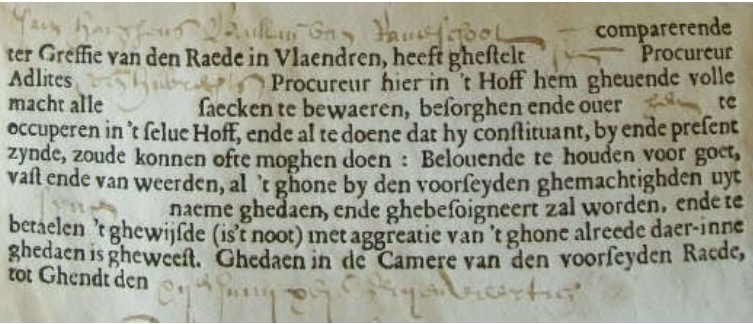 comparerende
ter Greffie van den Raede in Vlaendren, heeft ghestelt Procureur
Adlites Procureur hier in 't Hoff hem gheuende volle
macht alle saecken te bewaeren, besorghen ende ouer te
occuperen in 't selue Hoff, ende al te doene dat hy constituant, by ende present
zynde, zoude konnen ofte moghen doen : Belouende te houden voor goet,
vast ende van weerden, al 't ghone by den voorseyden ghemachtighden uyt
naeme ghedaen, ende ghebesoigneert zal worden, ende te
betaelen 't ghewijsde (is't noot) met aggreatie van 't ghone alreede daer-inne
ghedaen is gheweest. Ghedaen in de Camere van den voorseyden Raede,
tot Ghendt den